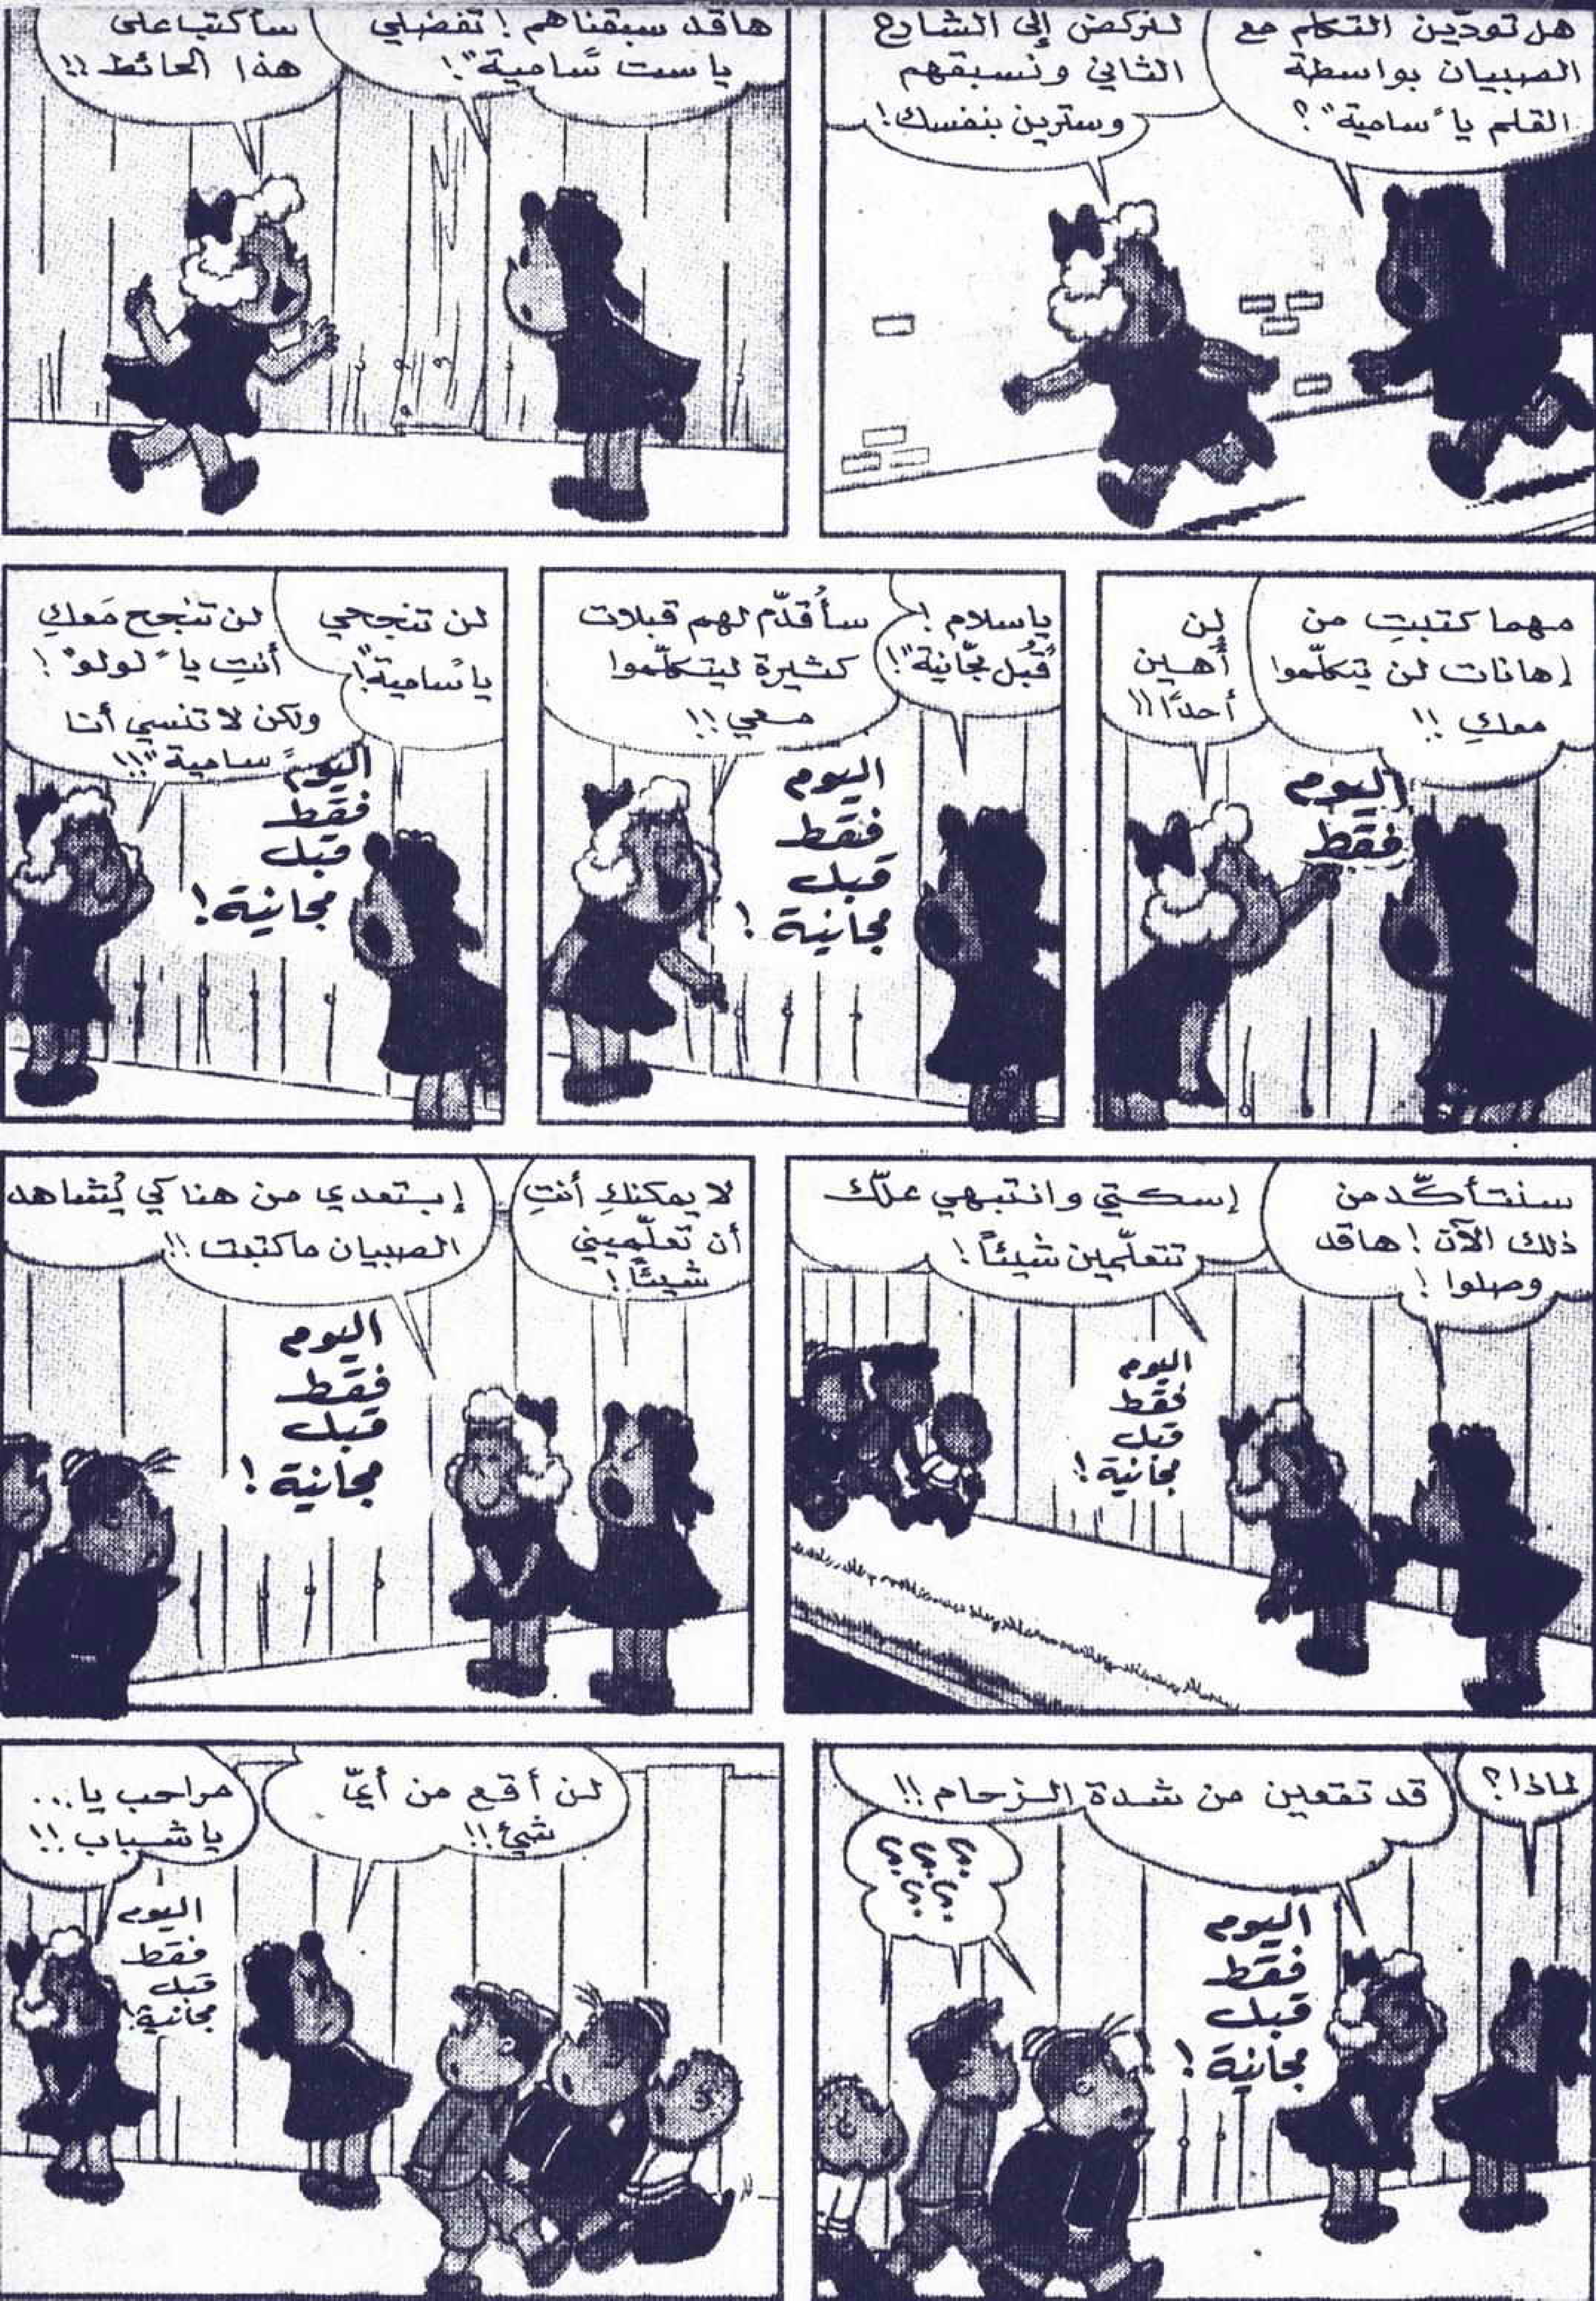 هل تودّين التكلم مع
الصبيان بواسطة
القلم يا "سامية"؟
لنركض إلى الشارع
الثاني ونسبقهم
وسترين بنفسك!
ها قد سبقناهم! تفضلي
يا ست "سامية"!
سأكتب على
هذا الحائط!!
مهما كتبتِ من
إهانات لن يتكلّموا
معكِ!!
لن
أهين
أحدًا!!
اليوم
فقط
يا سلام!
قُبل مجّانية"!
سأُقدّم لهم قبلات
كثيرة ليتكلّموا
معي!!
اليوم
فقط
قبل
مجانية!
لن تنجحي
يا "سامية"!
لن تنجح مَعكِ
أنتِ يا "لولو"!
ولكن لا تنسي أنا
"سامية"!!!
اليوم
فقط
قبل
مجانية!
سنتأكّد من
ذلك الآن! ها قد
وصلوا!
إسكتي وانتبهي علّك
تتعلّمين شيئاً!
اليوم
فقط
قبل
مجانية!
لا يمكنكِ أنتِ
أن تعلّميني
شيئًا!
إبتعدي من هنا كي يُشاهد
الصبيان ما كتبت!!
اليوم
فقط
قبل
مجانية!
لماذا؟
قد تقعين من شدة الزحام!!
؟؟؟
؟؟
اليوم
فقط
قبل
مجانية!
لن أقع من أيّ
شيئ!!
مراحب يا...
يا شباب!!
اليوم
فقط
قبل
مجانية!